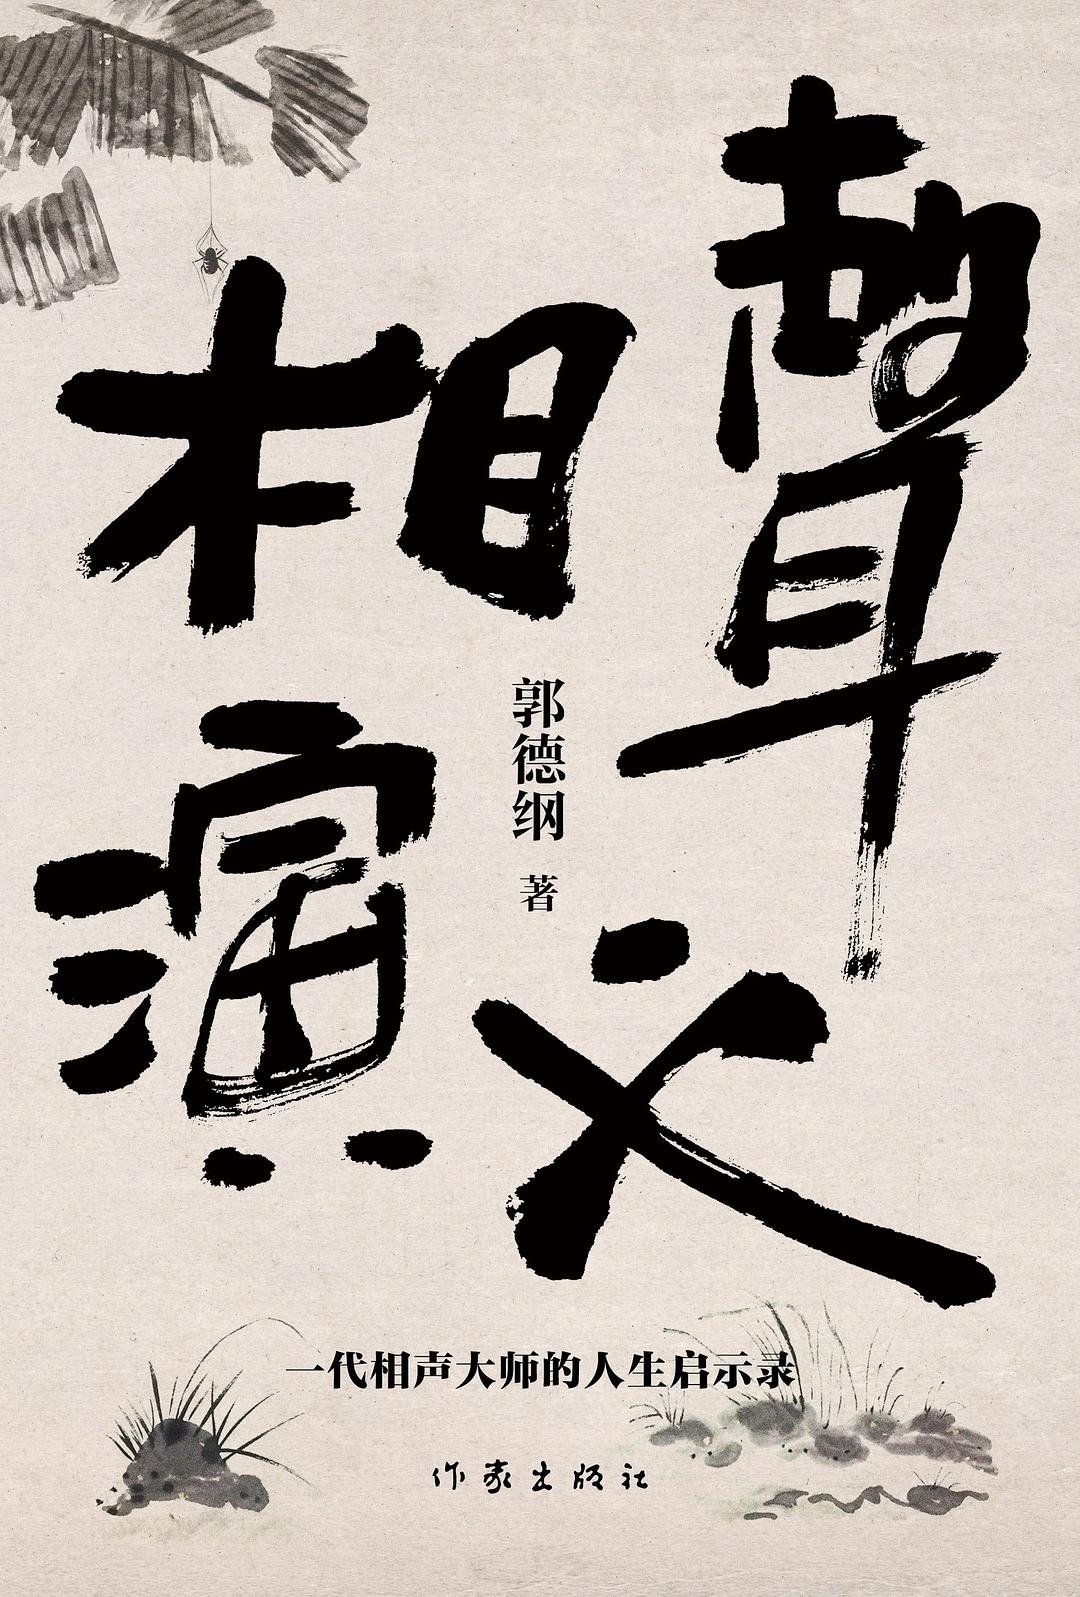 相聲
演义
郭德纲
著
一代相声大师的人生启示录
作家出版社